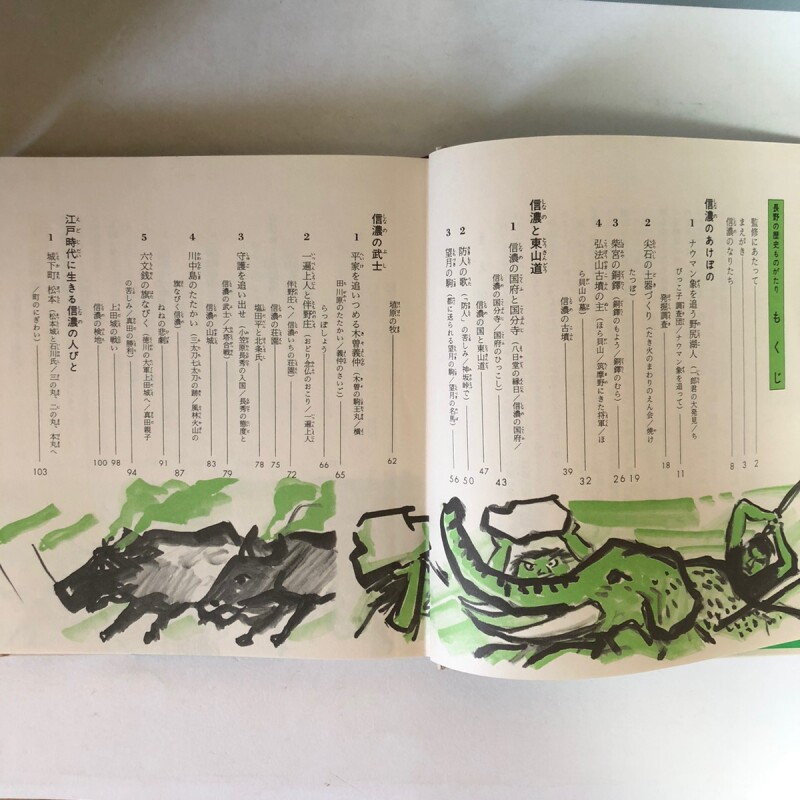 長野の歴史ものがたり もくじ
監修にあたって 2
まえがき 3
信濃のなりたち 8
信濃のあけぼの
1 ナウマン象を追う野尻湖人(一郎君の大発見/ち
びっこ調査団/ナウマン象を追って) 11
発掘調査 18
2 尖石の土器づくり(たき火のまわりのえん会/焼け
たつぼ) 19
3 柴宮の銅鐸(銅鐸のもよう/銅鐸のむら) 26
4 弘法山古墳の主(ほら貝山/筑摩野にきた将軍/ほ
ら貝山の墓) 32
信濃の古墳 39
信濃と東山道
1 信濃の国府と国分寺(八日堂の縁日/信濃の国府/
信濃の国分寺/国府のひっこし) 43
信濃の国と東山道 47
2 防人の歌(「防人」の苦しみ/神坂峠で) 50
3 望月の駒(都に送られる望月の駒/望月の名馬) 56
塩原の牧 62
信濃の武士
1 平家を追いつめる木曽義仲(木曽の駒王丸/横
田川原のたたかい/義仲のさいご) 65
らっぽしょう 66
2 一遍上人と伴野庄(おどり念仏のおこり/一遍上人
伴野庄へ/信濃いちの荘園) 72
信濃の荘園 75
塩田平と北条氏 78
3 守護を追い出せ(小笠原長秀の入国/長秀の態度と
信濃の武士/大塔合戦) 79
信濃の山城 83
4 川中島のたたかい(三太刀七太刀の跡/風林火山の
旗なびく信濃) 87
ねねの悲劇 91
5 六文銭の旗なびく(徳川の大軍上田城へ/真田親子
の苦しみ/真田の勝利) 94
上田城の戦い 98
信濃の検地 100
江戸時代に生きる信濃の人びと
1 城下町、松本(松本城と石川氏/三の丸、二の丸、本丸へ
/町のにぎわい) 103